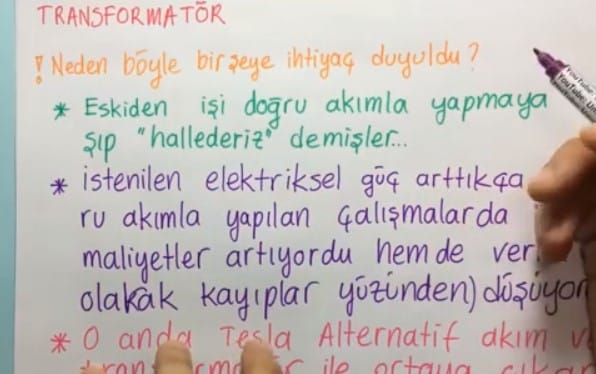 TRANSFORMATÖR
! Neden böyle bir şeye ihtiyaç duyuldu?
* Eskiden işi doğru akımla yapmaya
şıp "hallederiz" demişler...
* istenilen elektriksel güç arttıkça
ru akımla yapılan çalışmalarda
maliyetler artıyordu hem de ver
olakak kayıplar yüzünden) düşüyor
* O anda Tesla Alternatif akım v
ile ortaya çıkar